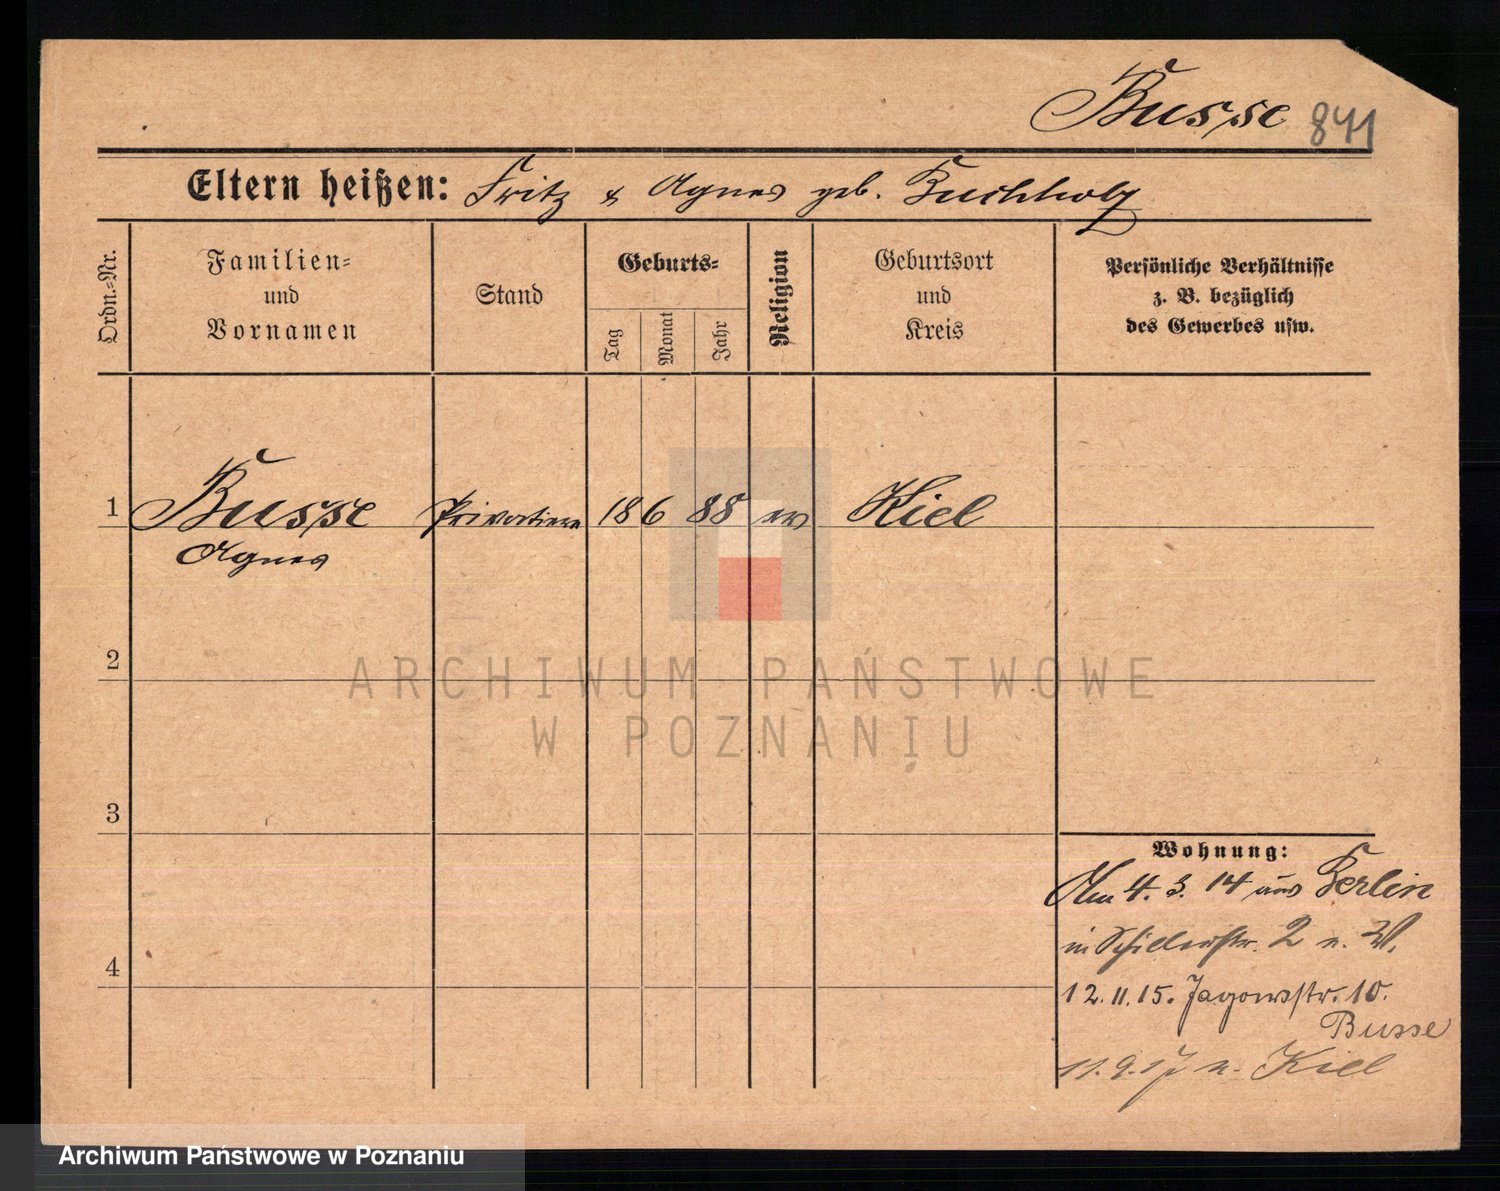 Busse 841
Eltern heißen: Fritz & Agnes geb. Buchholz
Ordn.=Nr.
Familien=
und
Vornamen
Stand
Geburts=
Tag
Monat
Jahr
Religion
Geburtsort
und
Kreis
Persönliche Verhältnisse
z. B. bezüglich
des Gewerbes usw.
1 Busse Privatiere 18 6 88 ev Kiel
Agnes
2
ARCHIWUM PAŃSTWOWE
W POZNANIU
3
4
Wohnung:
Am 4. 3. 14 aus Berlin
in Schillerstr. 2 n. W.
12. 11. 15. Jagowstr. 10.
Busse
11. 9. 17 n. Kiel
Archiwum Państwowe w Poznaniu